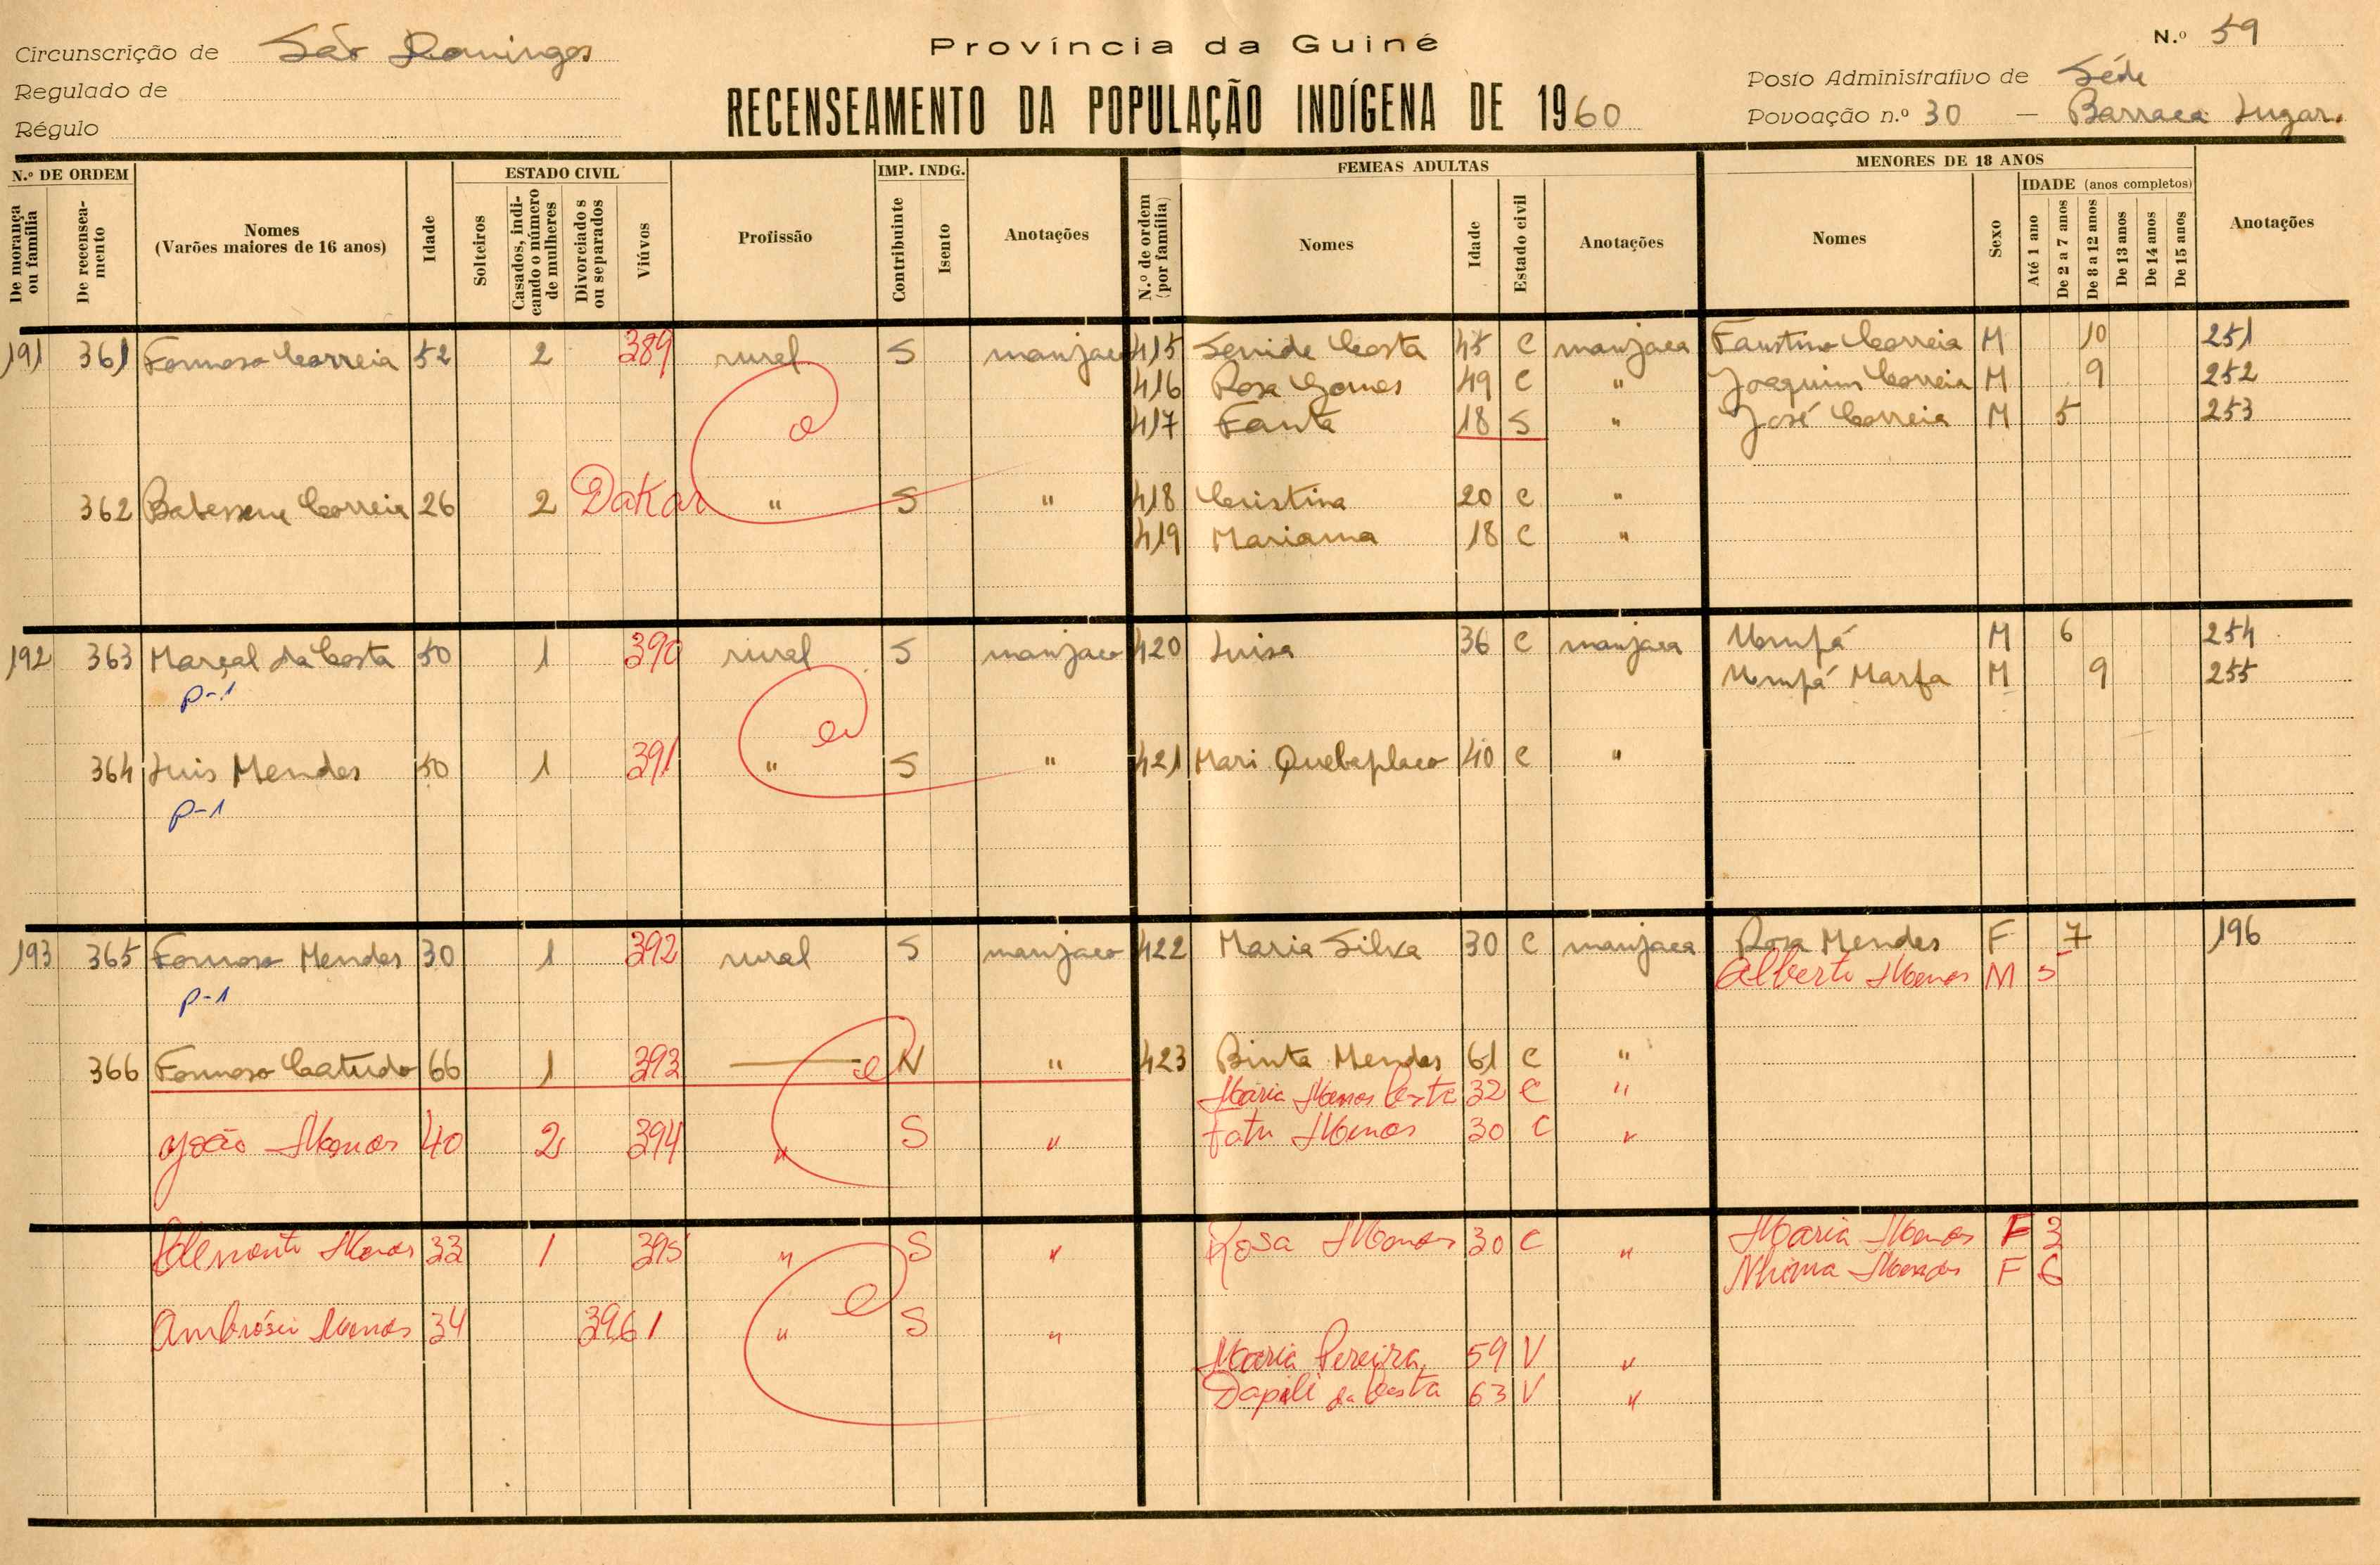 Circunscrição de São Domingos
Regulado de
Régulo
Província da Guiné
RECENSEAMENTO DA POPULAÇÃO INDÍGENA DE 1960
N.º 59
Posto Administrativo de Séde
Povoação n.º 30 — Barraca Lugar.
N.º DE ORDEM
De morança ou família
De recenseamento
Nomes
(Varões maiores de 16 anos)
Idade
ESTADO CIVIL
Solteiros
Casados, indicando o número de mulheres
Divorciados ou separados
Viúvos
Profissão
IMP. INDG.
Contribuinte
Isento
Anotações
FEMEAS ADULTAS
N.º de ordem (por família)
Nomes
Idade
Estado civil
Anotações
MENORES DE 18 ANOS
Nomes
Sexo
IDADE (anos completos)
Até 1 ano
De 2 a 7 anos
De 8 a 12 anos
De 13 anos
De 14 anos
De 15 anos
Anotações
191 361 Formoso Correia 52 2 389 rural S manjaco 415 Senide Costa 45 C manjaca Faustino Correia M 10 251
416 Rosa Gomes 49 C " Joaquim Correia M 9 252
417 Fanta 18 S " José Correia M 5 253
362 Correia 26 2 Dakar " S " 418 Cristina 20 C "
419 Mariama 18 C "
192 363 Marçal da Costa 50 1 390 rural S manjaco 420 Luisa 36 C manjaca Umpá M 6 254
p-1 Umpá Marfa M 9 255
364 Luis Mendes 50 1 391 " S " 421 Mari 40 C "
p-1
193 365 Formoso Mendes 30 1 392 rural S manjaco 422 Maria Silva 30 C manjaca Rosa Mendes F 7 196
Alberto M 5
p-1
366 Formoso Catudo 66 1 393 — N " 423 Binta Mendes 61 C "
Mária Costa 32 C "
João 40 2 394 " S " Fatu 30 C "
33 1 395 " S " Rosa 30 C " Maria F 3
F 6
Ambrósio 34 396 1 " S "
Maria Pereira 59 V "
Dapili da Costa 63 V "